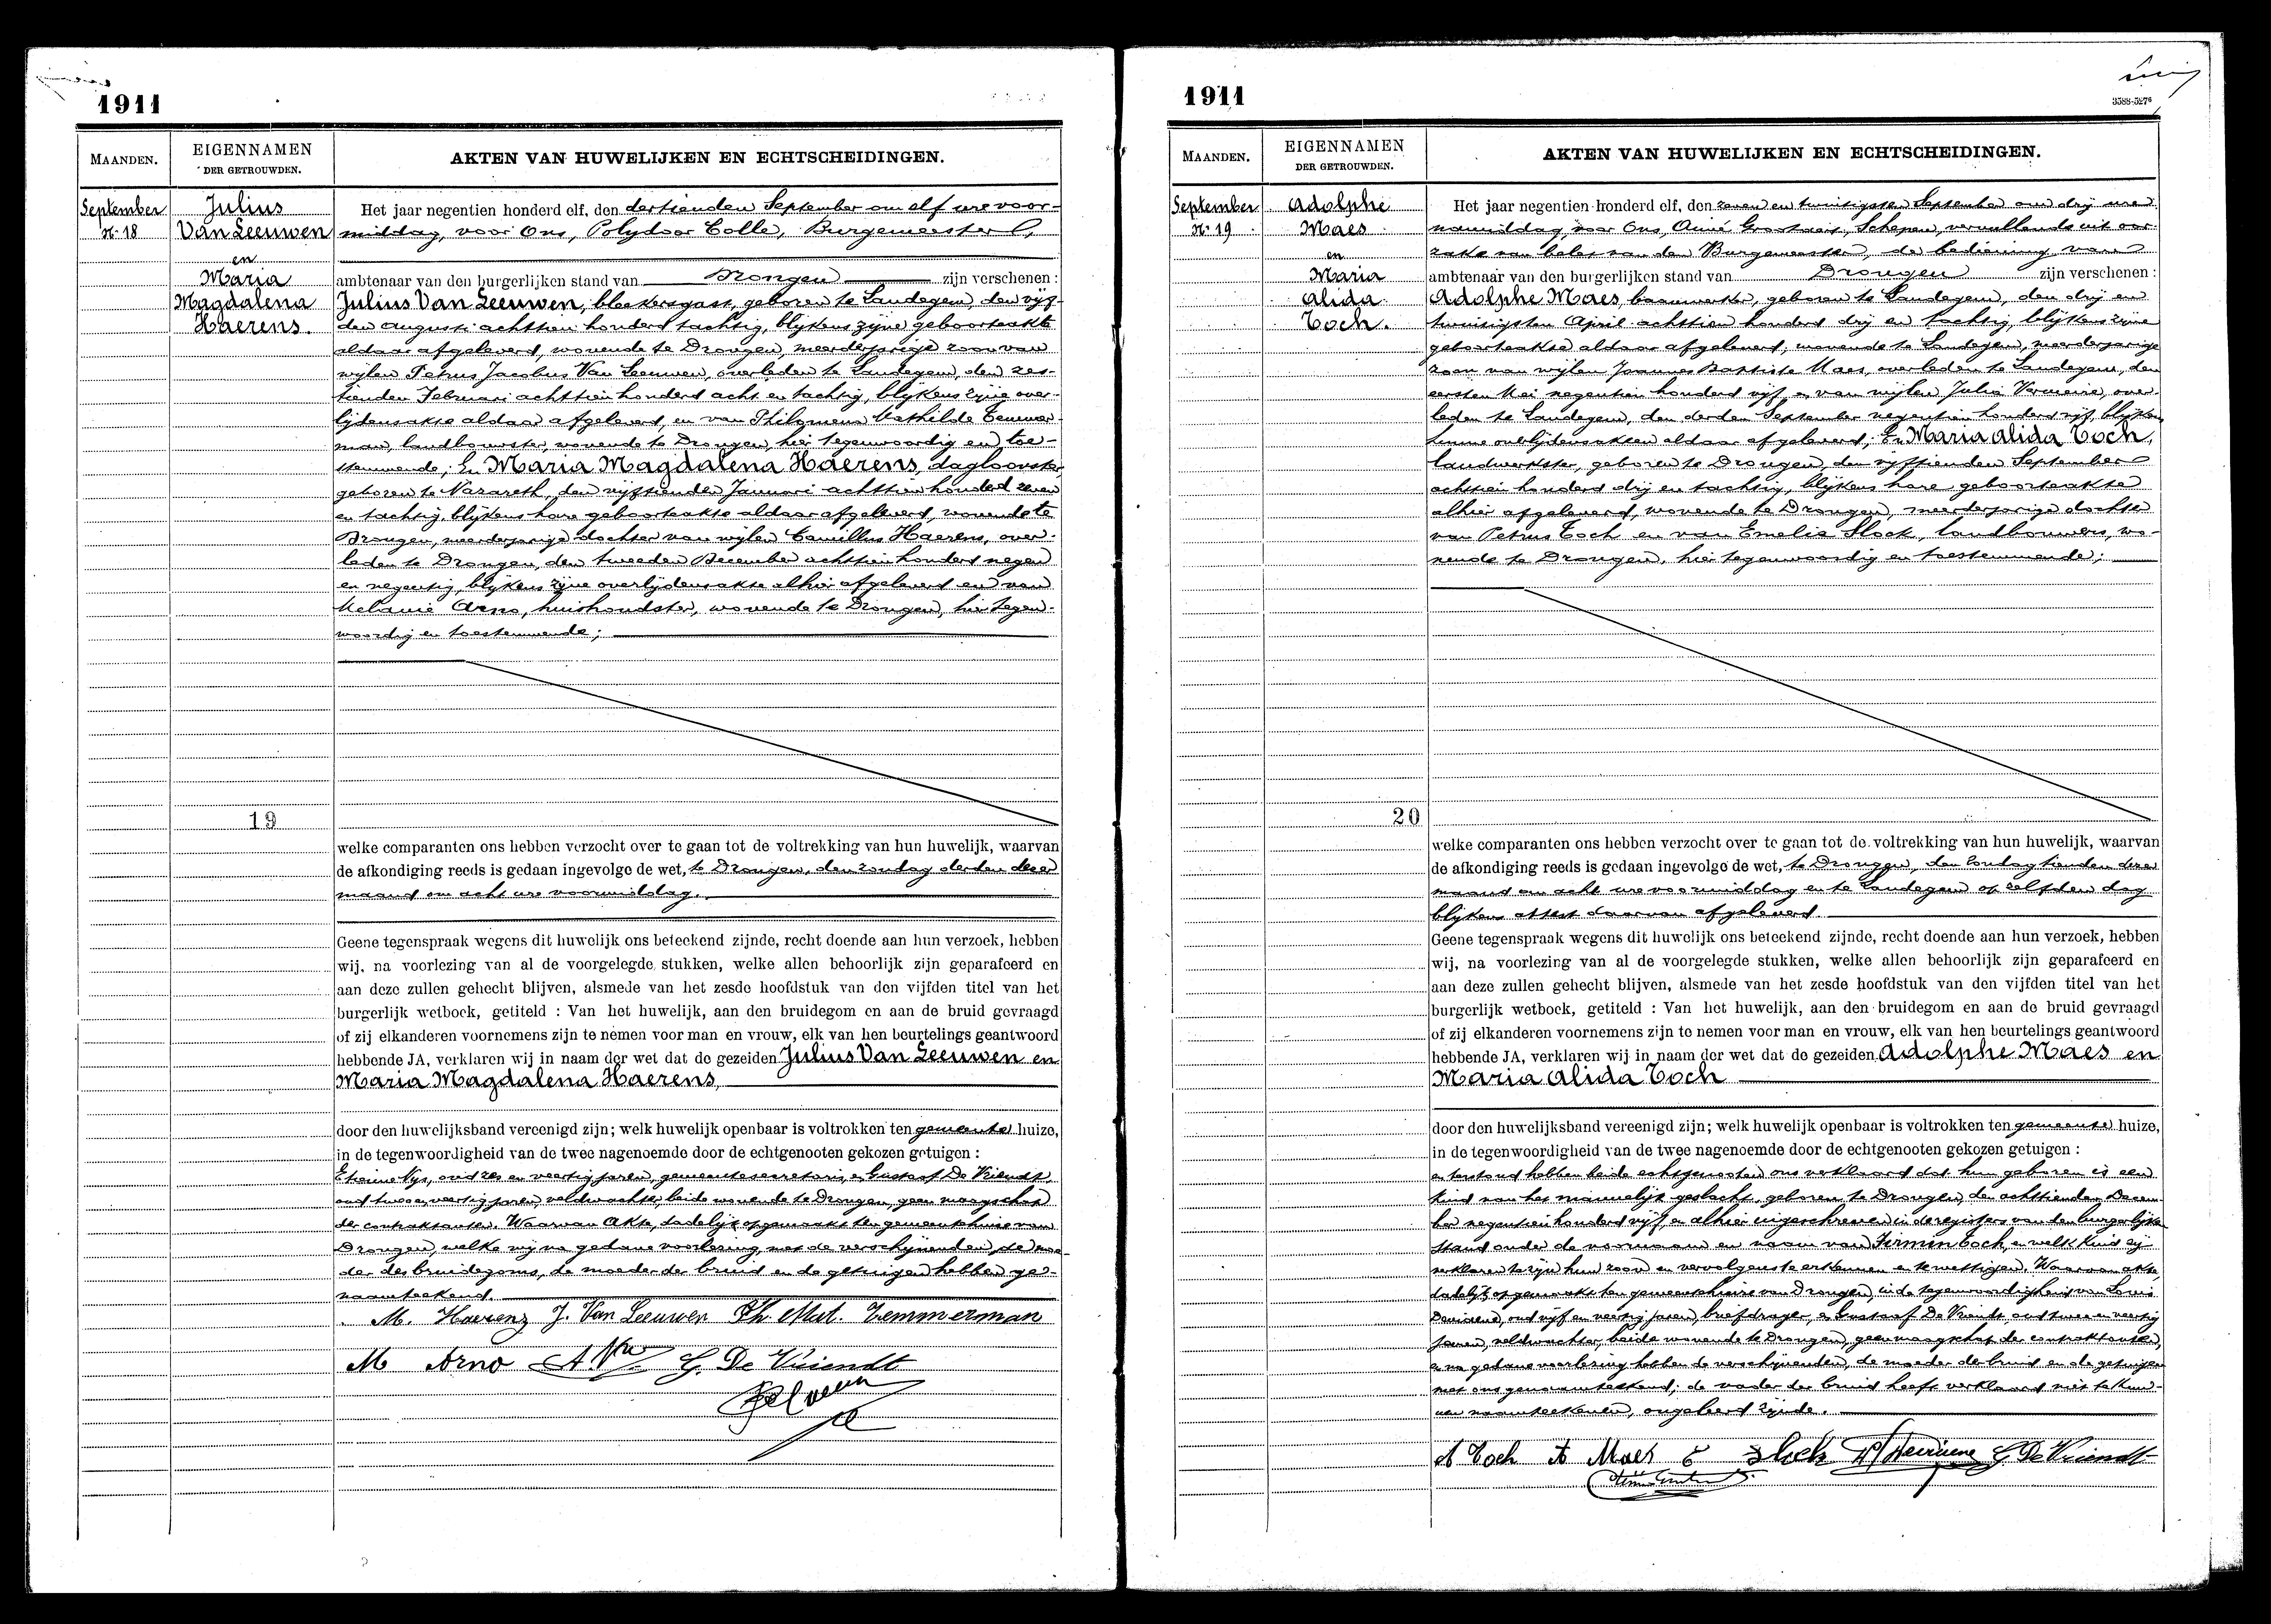 1911
MAANDEN.
EIGENNAMEN
DER GETROUWDEN.
AKTEN VAN HUWELIJKEN EN ECHTSCHEIDINGEN.
September
N: 18
Julius
Van Leeuwen
en
Maria
Magdalena
Haerens.
Het jaar negentien honderd elf, den dertienden September om elf ure voor-
middag, voor Ons, Polydoor Colle, Burgemeester,
ambtenaar van den burgerlijken stand van Drongen zijn verschenen :
Julius Van Leeuwen, bleekersgast, geboren te Landegem, den vijf-
den Augusti achttien honderd tachtig, blijkens zijne geboorteakte
aldaar afgeleverd, wonende te Drongen, meerderjarige zoon van
wijlen Petrus Jacobus Van Leeuwen, overleden te Landegem, den zes-
tienden Februari achttien honderd acht en tachtig, blijkens zijne over-
lijdensakte aldaar afgeleverd, en van Philomena Mathilde Temmer-
man, landbouwster, wonende te Drongen, hier tegenwoordig en toe-
stemmende; En Maria Magdalena Haerens, dagloonster
geboren te Nazareth, den vijftienden Januari achttien honderd zeven
en tachtig, blijkens hare geboorteakte aldaar afgeleverd, wonende te
Drongen, meerderjarige dochter van wijlen Camillus Haerens, over-
leden te Drongen, den tweeden December achttien honderd negen
en negentig, blijkens zijne overlijdensakte alhier afgeleverd en van
Melanie Arno, huishoudster, wonende te Drongen, hier tegen-
woordig en toestemmende;
19
welke comparanten ons hebben verzocht over te gaan tot de voltrekking van hun huwelijk, waarvan
de afkondiging reeds is gedaan ingevolge de wet, te Drongen, den zondag derden dezer
maand om acht ure voormiddag.
Geene tegenspraak wegens dit huwelijk ons beteekend zijnde, recht doende aan hun verzoek, hebben
wij, na voorlezing van al de voorgelegde stukken, welke allen behoorlijk zijn geparafeerd en
aan deze zullen gehecht blijven, alsmede van het zesde hoofdstuk van den vijfden titel van het
burgerlijk wetboek, getiteld : Van het huwelijk, aan den bruidegom en aan de bruid gevraagd
of zij elkanderen voornemens zijn te nemen voor man en vrouw, elk van hen beurtelings geantwoord
hebbende JA, verklaren wij in naam der wet dat de gezeiden Julius Van Leeuwen en
Maria Magdalena Haerens,
door den huwelijksband vereenigd zijn; welk huwelijk openbaar is voltrokken ten gemeente huize,
in de tegenwoordigheid van de twee nagenoemde door de echtgenooten gekozen getuigen :
Nys, oud zes en veertig jaren, gemeentesecretaris, en Gustaaf De Vriendt,
oud twee en veertig jaren, veldwachter, beide wonende te Drongen, geen maagschap
der contraktanten. Waarvan Akte, dadelijk opgemaakt ten gemeentehuize van
Drongen, welke wij na gedane voorlezing, met de verschijnenden, de moe-
der des bruidegoms, de moeder der bruid en de getuigen hebben ge-
naamteekend.
M. Haerenz J. Van Leeuwen Ph. Mat. Temmerman
M Arno G. De Vriendt
1911
3588-5276
MAANDEN.
EIGENNAMEN
DER GETROUWDEN.
AKTEN VAN HUWELIJKEN EN ECHTSCHEIDINGEN.
September
N: 19
Adolphe
Maes
en
Maria
Alida
Toch.
Het jaar negentien honderd elf, den zeven en twintigsten September om drij uren
namiddag, voor Ons, Aimé Grootaert, Schepen, vervullende uit oor-
zake van belet van den Burgemeester, de bediening van
ambtenaar van den burgerlijken stand van Drongen zijn verschenen :
Adolphe Maes, boomwerker, geboren te Landegem, den drij en
twintigsten April achttien honderd drij en tachtig, blijkens zijne
geboorteakte aldaar afgeleverd, wonende te Landegem, meerderjarige
zoon van wijlen Joannes Baptiste Maes, overleden te Landegem, den
eersten Mei negentien honderd vijf, en van wijlen Julia Vermeire, over-
leden te Landegem, den derden September negentien honderd vijf, blijkens
hunne overlijdensakten aldaar afgeleverd; En Maria Alida Toch,
landwerkster, geboren te Drongen, den vijftienden September
achttien honderd drij en tachtig, blijkens hare geboorteakte
alhier afgeleverd, wonende te Drongen, meerderjarige dochter
van Petrus Toch en van Emelia Slock, landbouwers, wo-
nende te Drongen, hier tegenwoordig en toestemmende;
20
welke comparanten ons hebben verzocht over te gaan tot de voltrekking van hun huwelijk, waarvan
de afkondiging reeds is gedaan ingevolge de wet, te Drongen, den zondag tienden dezer
maand om acht ure voormiddag en te Landegem op zelfden dag
blijkens attest daarvan afgeleverd.
Geene tegenspraak wegens dit huwelijk ons beteekend zijnde, recht doende aan hun verzoek, hebben
wij, na voorlezing van al de voorgelegde stukken, welke allen behoorlijk zijn geparafeerd en
aan deze zullen gehecht blijven, alsmede van het zesde hoofdstuk van den vijfden titel van het
burgerlijk wetboek, getiteld : Van het huwelijk, aan den bruidegom en aan de bruid gevraagd
of zij elkanderen voornemens zijn te nemen voor man en vrouw, elk van hen beurtelings geantwoord
hebbende JA, verklaren wij in naam der wet dat de gezeiden Adolphe Maes en
Maria Alida Toch
door den huwelijksband vereenigd zijn; welk huwelijk openbaar is voltrokken ten gemeente huize,
in de tegenwoordigheid van de twee nagenoemde door de echtgenooten gekozen getuigen :
en terstond hebben beide echtgenooten ons verklaard dat hun geboren is een
kind van het mannelijk geslacht, geboren te Drongen, den achttienden Decem-
ber negentien honderd vijf, en alhier ingeschreven in de registers van den burgerlijken
stand onder de voornaam en naam van Firmin Toch, en welk kind zij
verklaren te zijn hun zoon en vervolgens te erkennen en te wettigen. Waarvan akte,
dadelijk opgemaakt ten gemeentehuize van Drongen, in de tegenwoordigheid van Louis
oud vijf en veertig jaren, briefdrager, en Gustaaf De Vriendt, oud twee en veertig
jaren, veldwachter, beide wonende te Drongen, geen maagschap der contraktanten,
en na gedane voorlezing hebben de verschijnenden, de moeder der bruid en de getuigen
met ons genaamteekend; de vader der bruid heeft verklaard niet te kun-
nen naamteekenen, ongeleerd zijnde.
A Toch A Maes E Slock G. De Vriendt